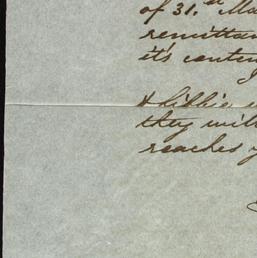 of 31.st Ma
remittan
it's conten
& Libbie
they will
reaches y